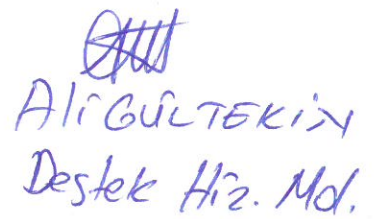 Ali GÜLTEKİN
Destek Hiz. Md.